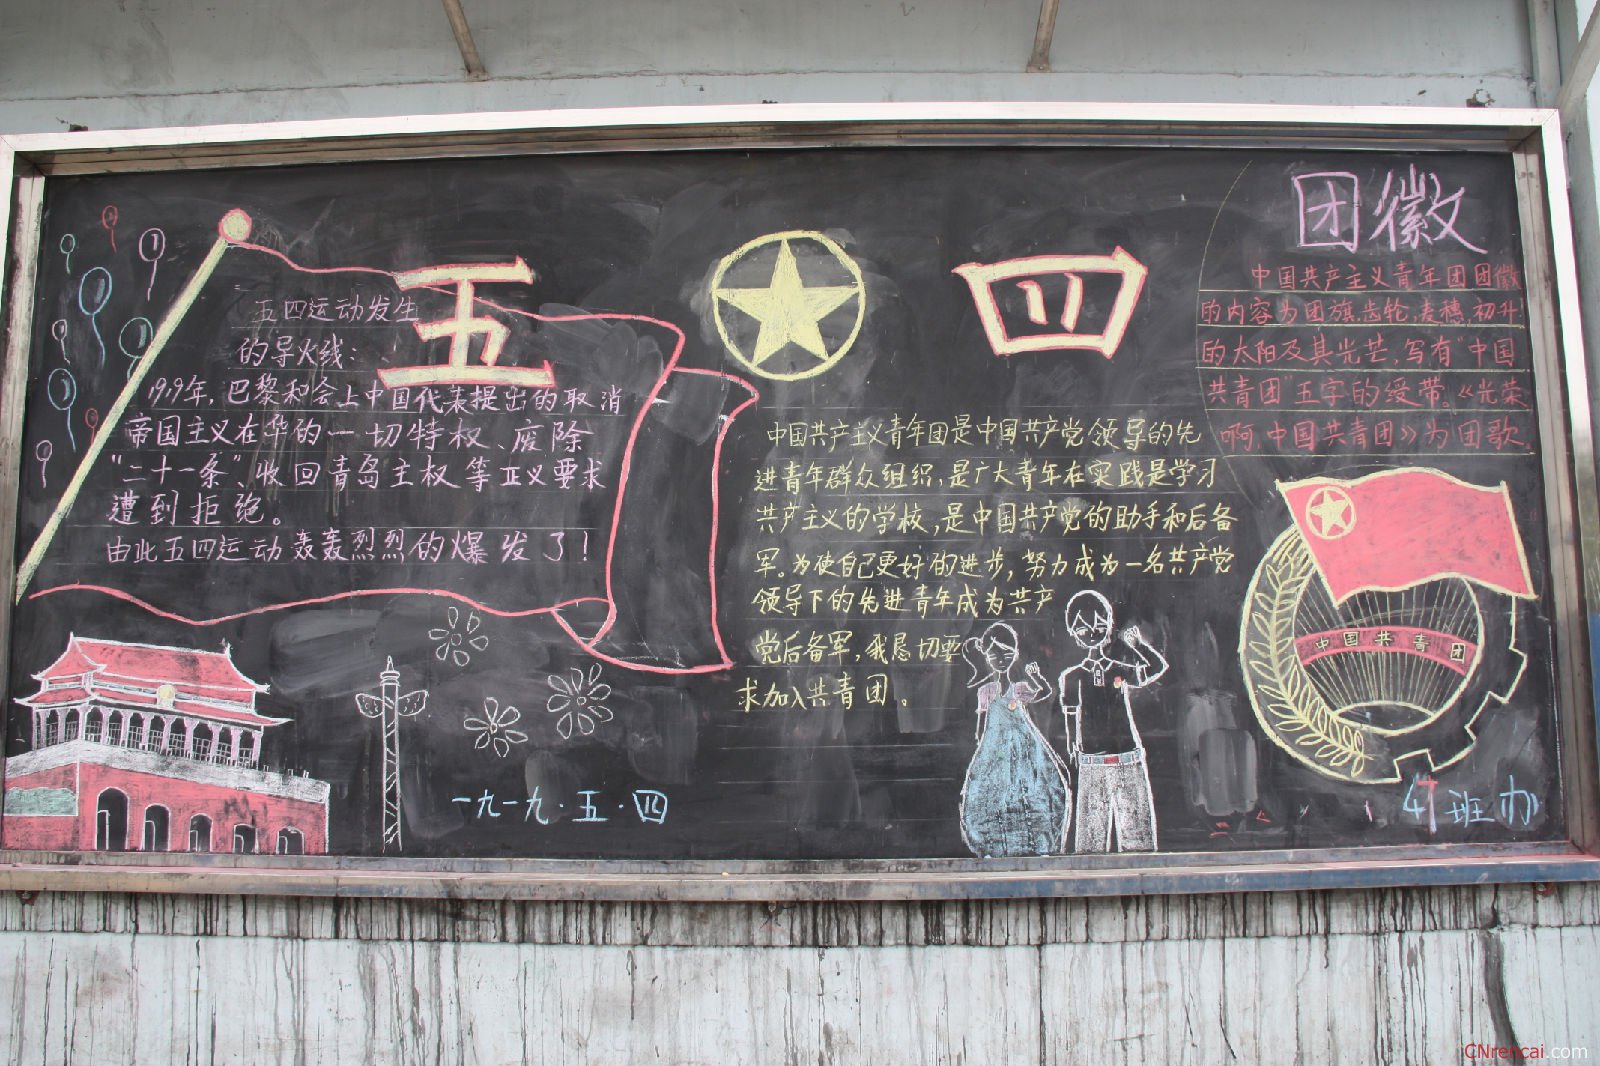 五 四
五四运动发生
的导火线:
1919年,巴黎和会上中国代表提出的取消
帝国主义在华的一切特权、废除
“二十一条”、收回青岛主权等正义要求
遭到拒绝。
由此五四运动轰轰烈烈的爆发了!
一九一九·五·四
中国共产主义青年团是中国共产党领导的先
进青年群众组织,是广大青年在实践是学习
共产主义的学校,是中国共产党的助手和后备
军。为使自己更好的进步,努力成为一名共产党
领导下的先进青年成为共产
党后备军,我恳切要
求加入共青团。
团徽
中国共产主义青年团团徽
的内容为团旗,齿轮,麦穗,初升
的太阳及其光芒,写有“中国
共青团”五字的绶带。《光荣
啊,中国共青团》为团歌。
中国共青团
47班办
CNrencai.com